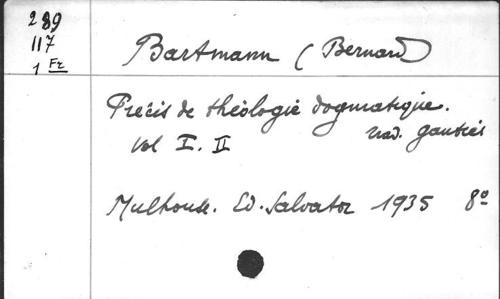 289
117
1 Fr
Bartmann (Bernard)
Précis de théologie dogmatique.
Vol I. II trad. Gautier
Mulhouse. Ed. Salvator 1935 8º